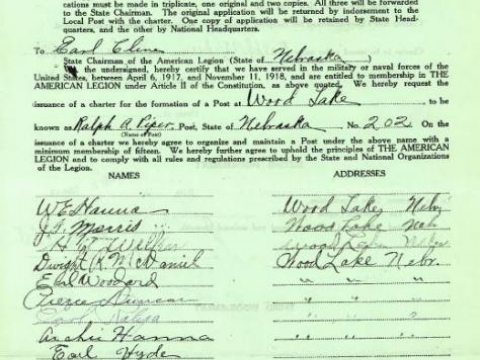 cations must be made in triplicate, one original and two copies. All three will be forwarded
to the State Chairman. The original application will be returned by indorsement to the
Local Post with charter. One copy of application will be retained by State Head-
quarters, and the other by National Headquarters.
To Earl Cline
State Chairman of the American Legion (State of Nebraska)
We, the undersigned, hereby certify that we have served in the military or naval forces of the
United States, between April 6, 1917, and November 11, 1918, and are entitled to membership in THE
AMERICAN LEGION under Article II of the Constitution, as above quoted. We hereby request the
issuance of a charter for the formation of a Post at Wood Lake to be
known as Ralph A Piper Post, State of Nebraska No. 202. On
(Name of Post)
issuance of a charter we hereby agree to organize and maintain a Post under the above name with a
minimum membership of fifteen. We hereby further agree to uphold the principles of THE AMERICAN
LEGION and to comply with all rules and regulations prescribed by the State and National Organizations
of the Legion.
NAMES ADDRESSES
W E Hanna Wood Lake Nebr
J. F. Morris Wood Lake Neb
Wood Lake
Dwight R. McDaniel Wood Lake Nebr.
Earl Woodard " " "
Pierce " " "
" " "
Archie Hanna " " "
Earl Hyde " " "